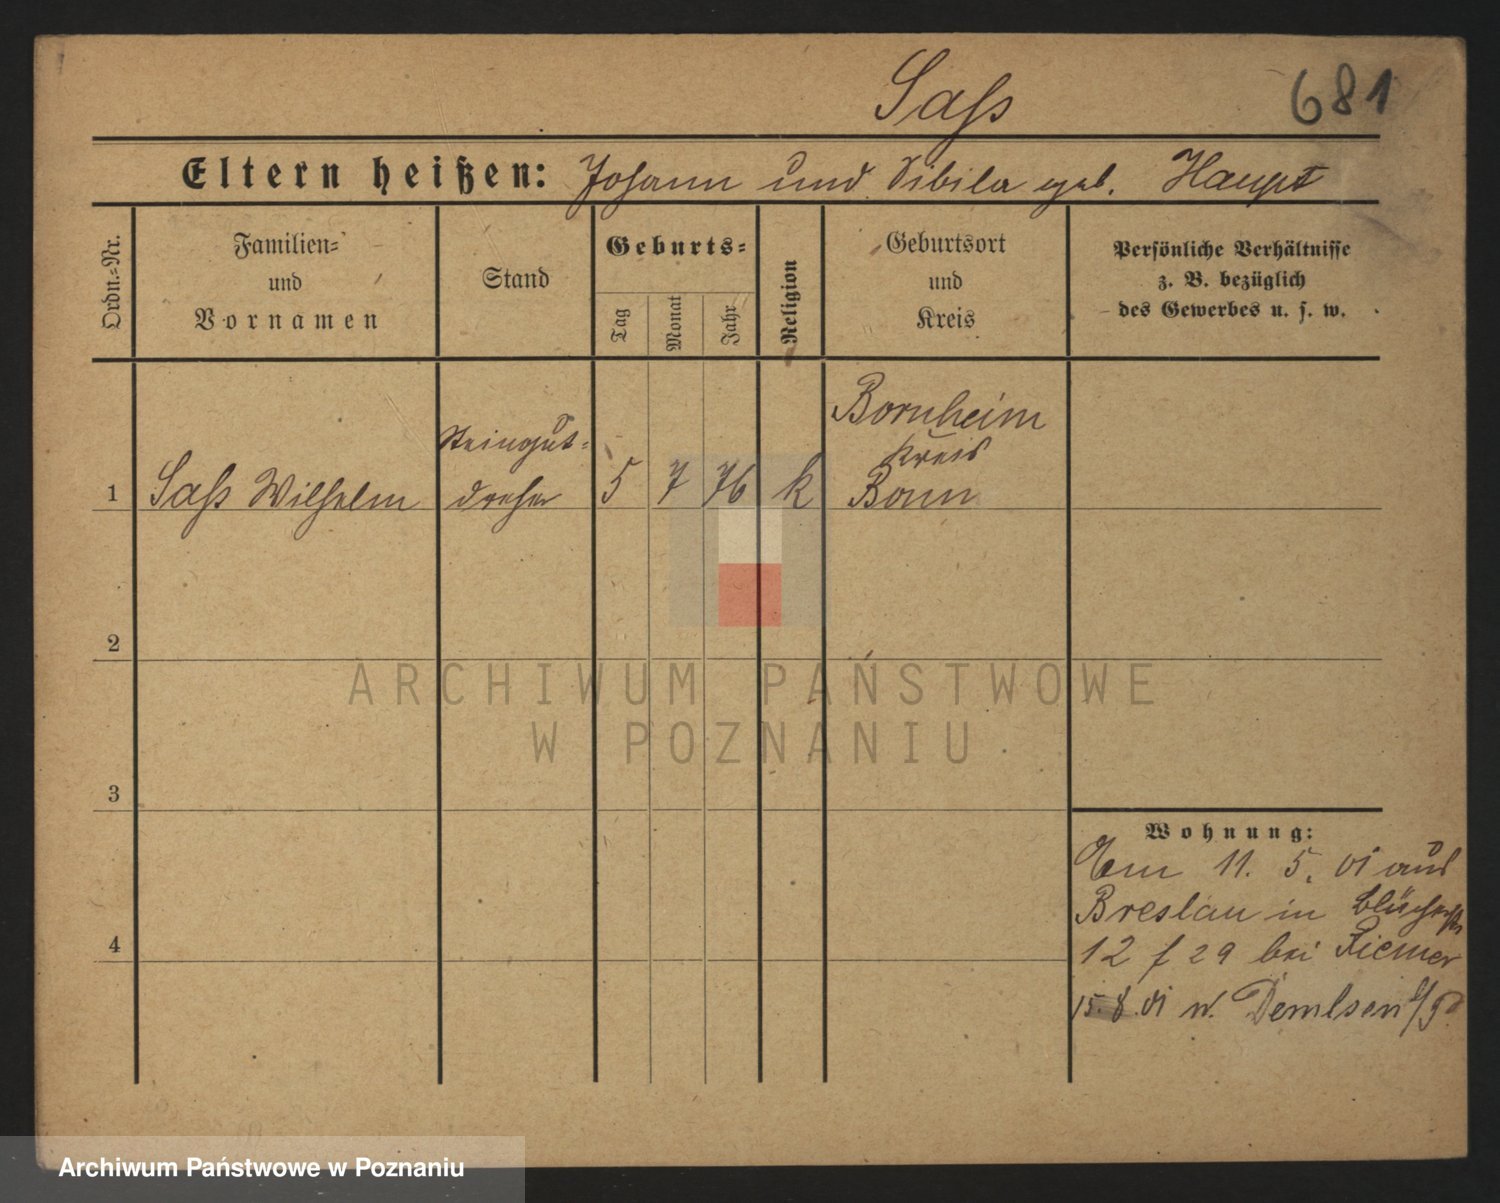 Saß
681
Eltern heißen: Johann und Sibila geb. Haupt
Ordn.-Nr.
Familien-
und
Vornamen
Stand
Geburts-
Tag
Monat
Jahr
Religion
Geburtsort
und
Kreis
Persönliche Verhältnisse
z. B. bezüglich
des Gewerbes u. s. w.
1
Saß Wilhelm
Steingut-
dreher
5
7
76
k
Bornheim
Kreis
Bonn
2
3
4
Wohnung:
11. 5. 01 aus
Breslau in Blücherstr
12 f 29 bei Riemer
15. 8. 01 n.
ARCHIWUM PAŃSTWOWE
W POZNANIU
Archiwum Państwowe w Poznaniu